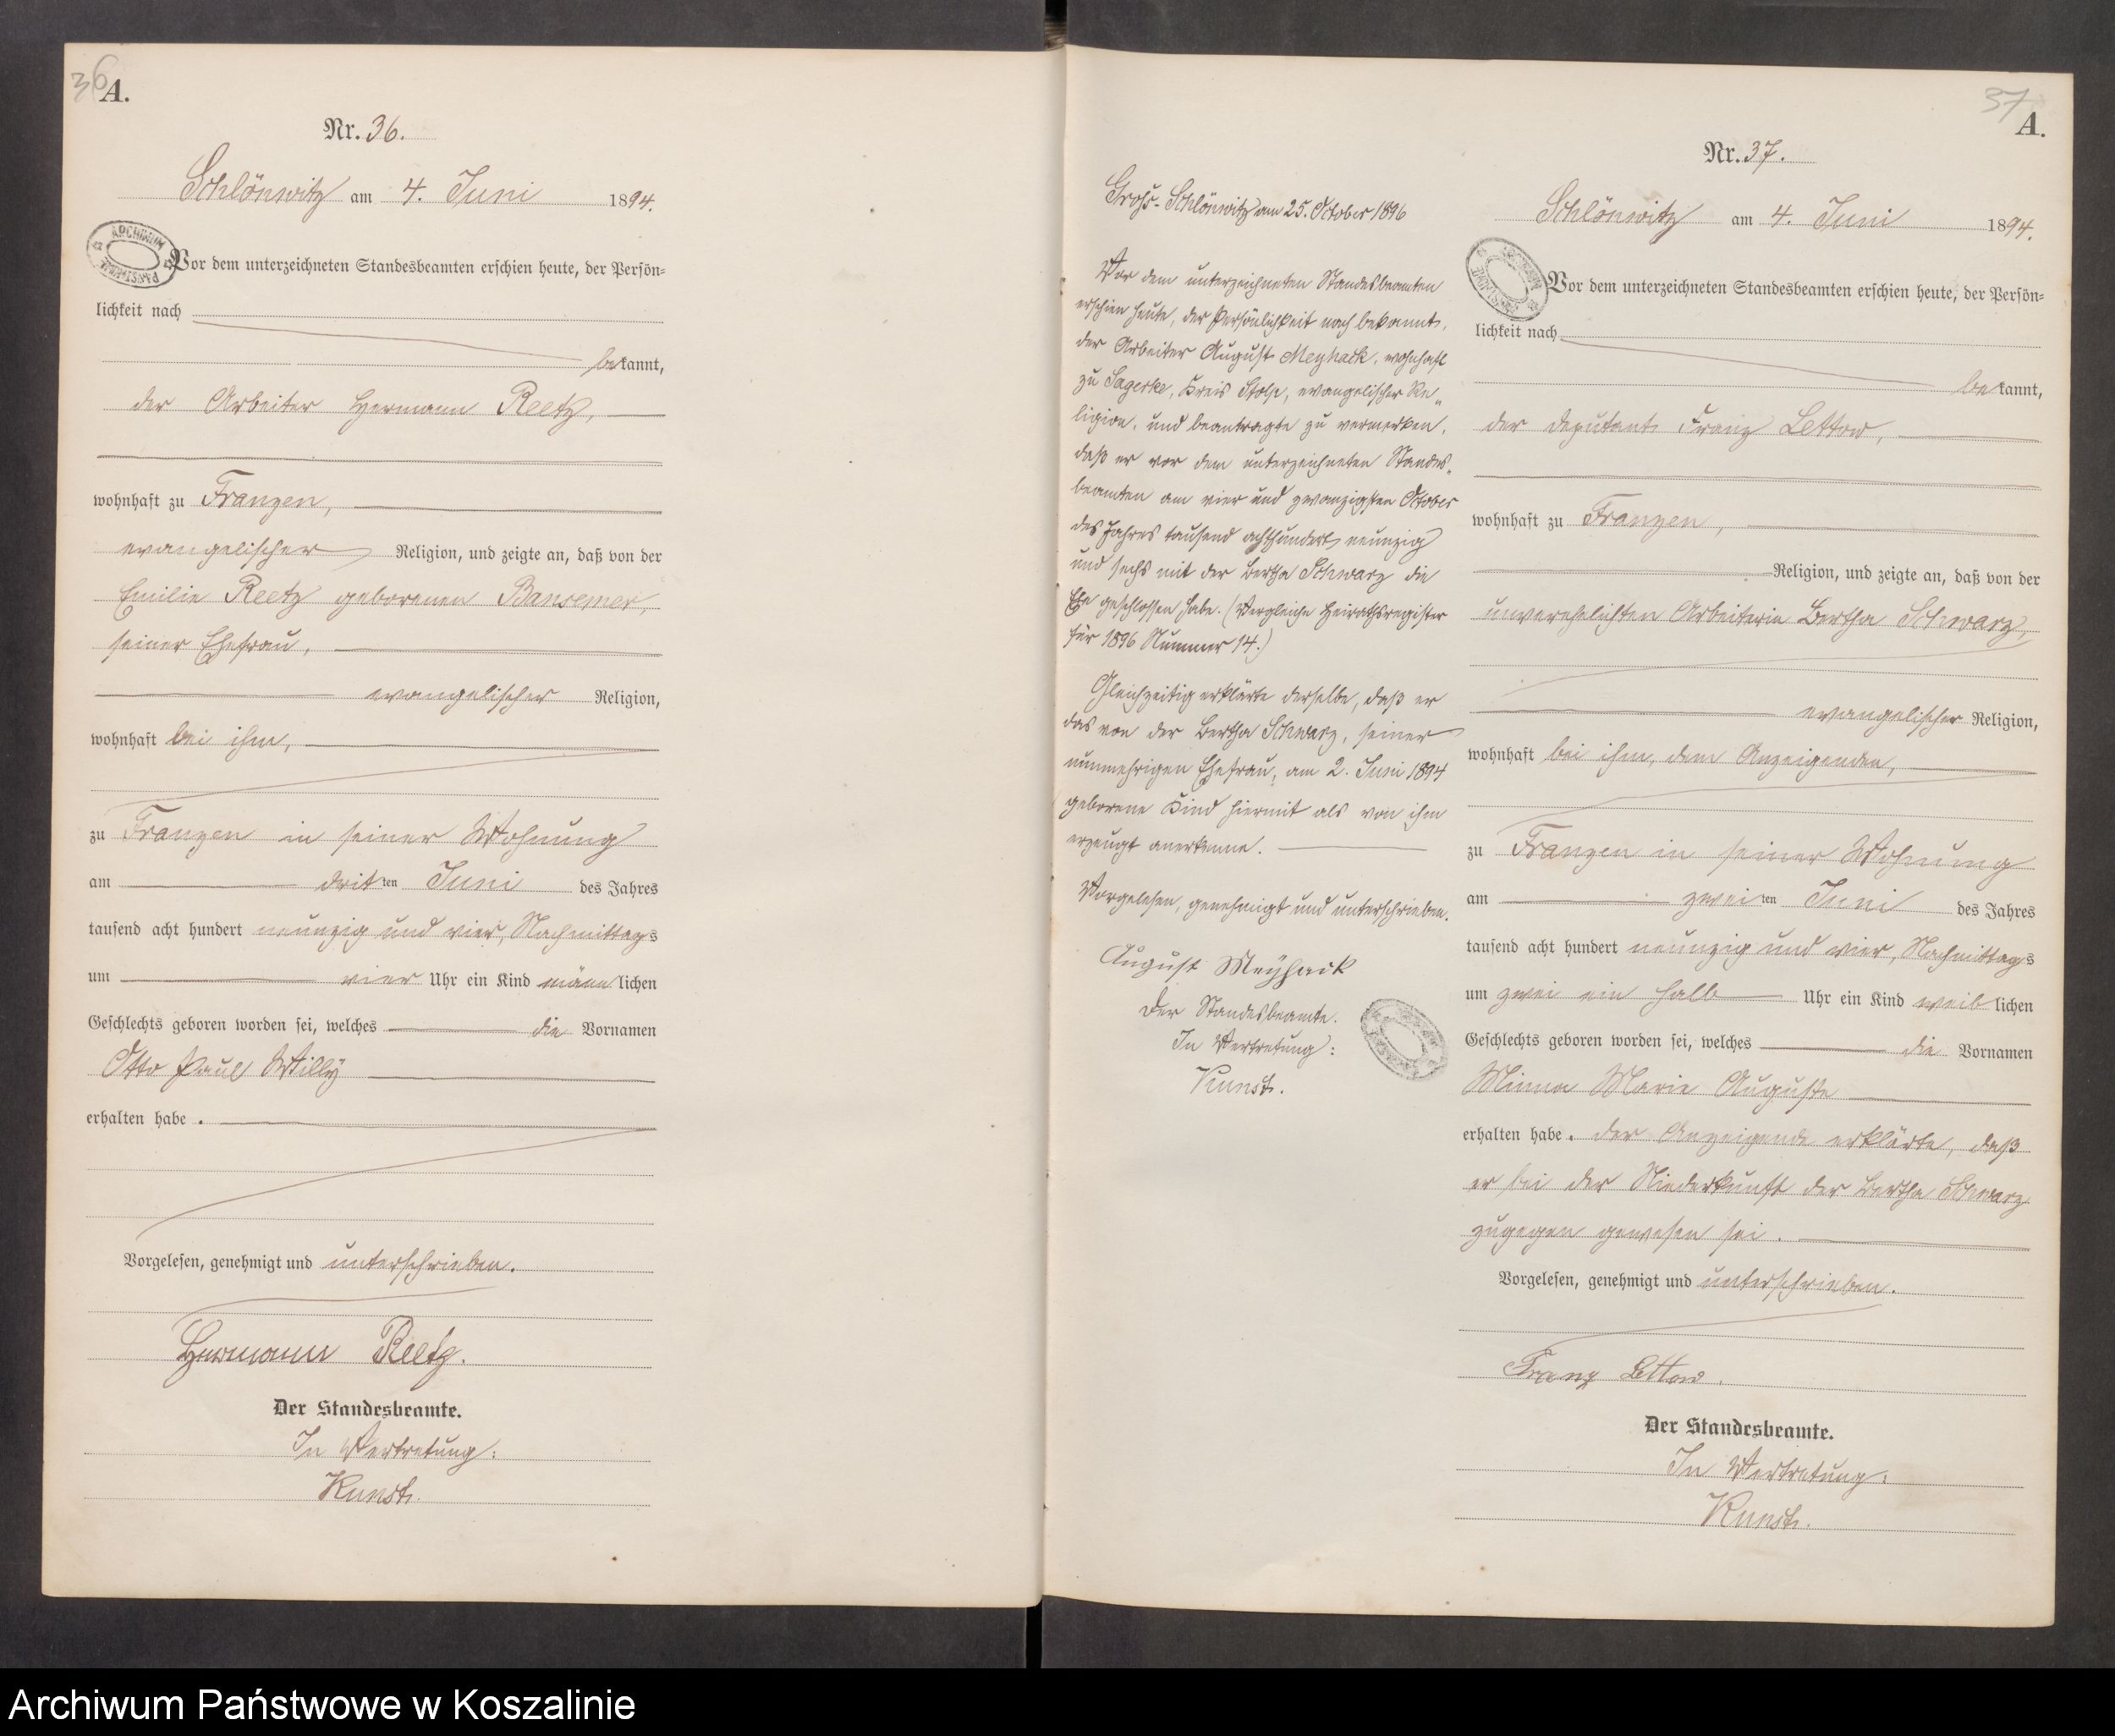 36
A.
Nr. 36.
Schlönwitz am 4. Juni 1894.
ARCHIWUM
Vor dem unterzeichneten Standesbeamten erschien heute, der Persön-
lichkeit nach
bekannt,
der Arbeiter Hermann Reetz,
wohnhaft zu Franzen,
evangelischer Religion, und zeigte an, daß von der
Emilie Reetz geborenen Bansemer,
seiner Ehefrau,
evangelischer Religion,
wohnhaft bei ihm,
zu Franzen in seiner Wohnung
am dritten Juni des Jahres
tausend acht hundert neunzig und vier, Nachmittags
um vier Uhr ein Kind männlichen
Geschlechts geboren worden sei, welches die Vornamen
Otto Paul Willy
erhalten habe.
Vorgelesen, genehmigt und unterschrieben.
Hermann Reetz.
Der Standesbeamte.
In Vertretung:
Kunst.
Groß-Schlönwitz am 25. October 1896
Vor dem unterzeichneten Standesbeamten
erschien heute, der Persönlichkeit nach bekannt,
der Arbeiter August Meyhack, wohnhaft
zu Sagerke, Kreis Stolp, evangelischer Re-
ligion, und beantragte zu vermerken,
daß er vor dem unterzeichneten Standes-
beamten am vier und zwanzigsten October
des Jahres tausend achthundert neunzig
und sechs mit der Bertha Schwarz die
Ehe geschlossen habe. (Vergleiche Heirathsregister
für 1896 Nummer 14.)
Gleichzeitig erklärte derselbe, daß er
das von der Bertha Schwarz, seiner
nunmehrigen Ehefrau, am 2. Juni 1894
geborene Kind hiermit als von ihm
erzeugt anerkenne.
Vorgelesen, genehmigt und unterschrieben.
August Meyhack
Der Standesbeamte.
In Vertretung:
Kunst.
37
A.
Nr. 37.
Schlönwitz am 4. Juni 1894.
Vor dem unterzeichneten Standesbeamten erschien heute, der Persön-
lichkeit nach
bekannt,
der Deputant Franz Lettow,
wohnhaft zu Franzen,
Religion, und zeigte an, daß von der
unverehelichten Arbeiterin Bertha Schwarz,
evangelischer Religion,
wohnhaft bei ihm, dem Anzeigenden,
zu Franzen in seiner Wohnung
am zweiten Juni des Jahres
tausend acht hundert neunzig und vier, Nachmittags
um zwei ein halb Uhr ein Kind weiblichen
Geschlechts geboren worden sei, welches die Vornamen
Minna Marie Auguste
erhalten habe. Der Anzeigende erklärte, daß
er bei der Niederkunft der Bertha Schwarz
zugegen gewesen sei.
Vorgelesen, genehmigt und unterschrieben.
Franz Lettow.
Der Standesbeamte.
In Vertretung:
Kunst.
Archiwum Państwowe w Koszalinie